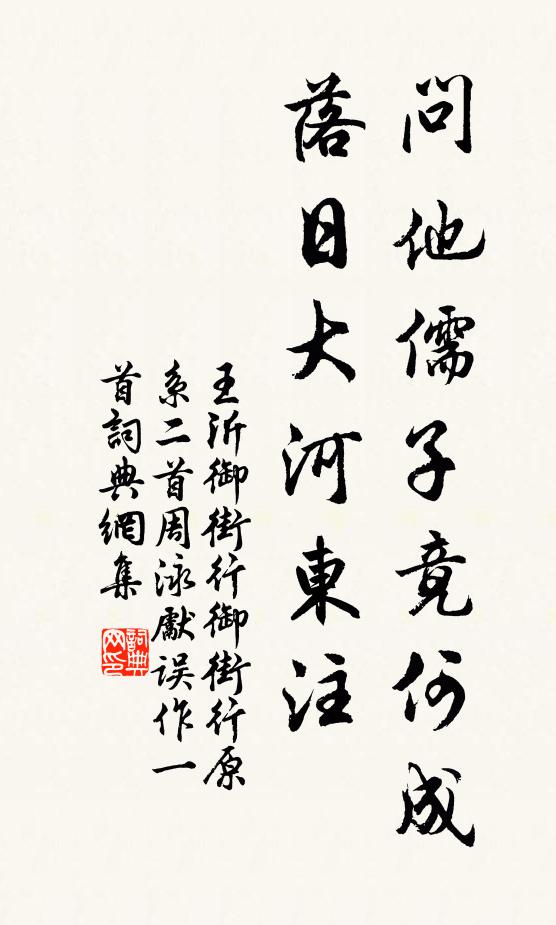 問他儒子竟何成
落日大河東注
王沂御街行御街行原
系二首周泳獻误作一
首詞典網集
詞典网印